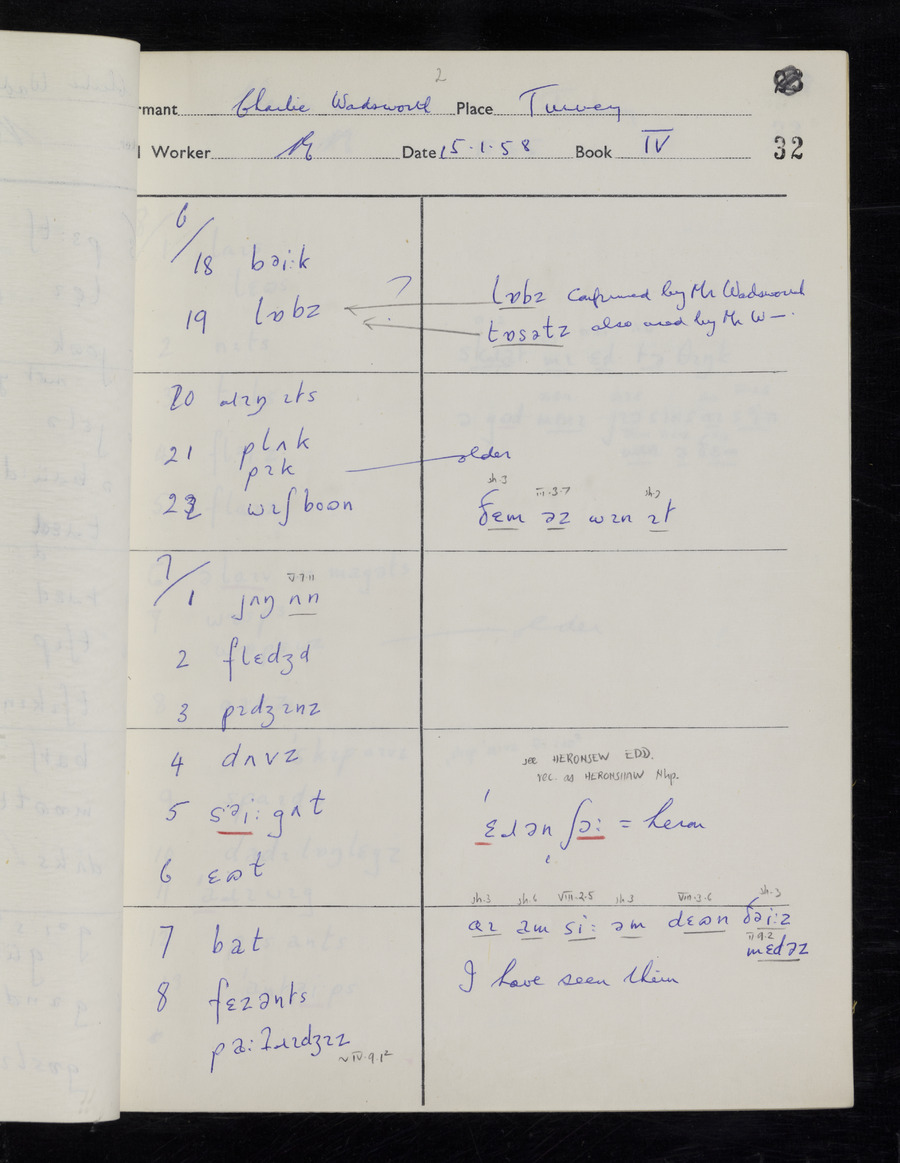 2
rmant Charlie Wadsworth Place Turvey
l Worker Date 15.1.58 Book IV 32
6/18 bəi:k
19 lɒbz ? lɒbz confirmed by Mr Wadsworth
tɒsətz also used by Mr W—.
20 ɹɪŋ ɪts
21 plʌk
pɪk older
22 wɪʃ boʊn ðɛm əz wɪn ɪt
sh.3 III.3.7 sh.2
7/1 jʌŋ ʌn
V.7.11
2 flɛdʒd
3 pɪdʒɪnz
4 dʌvz
see HERONSEW EDD.
rec. as HERONSHAW Nhp.
5 səi: gʌt ɛɹən ʃə: = heron
6 ɛʊt
sh.3 sh.6 VIII.2.5 sh.3 VIII.3.6 sh.3
7 bat ɑɪ əm si: əm dɛʊn ðəi:z
II.9.2
mɛdəz
8 fɛzənts I have seen them
pɑ:ʔɹɪdʒɪz
~IV.9.12